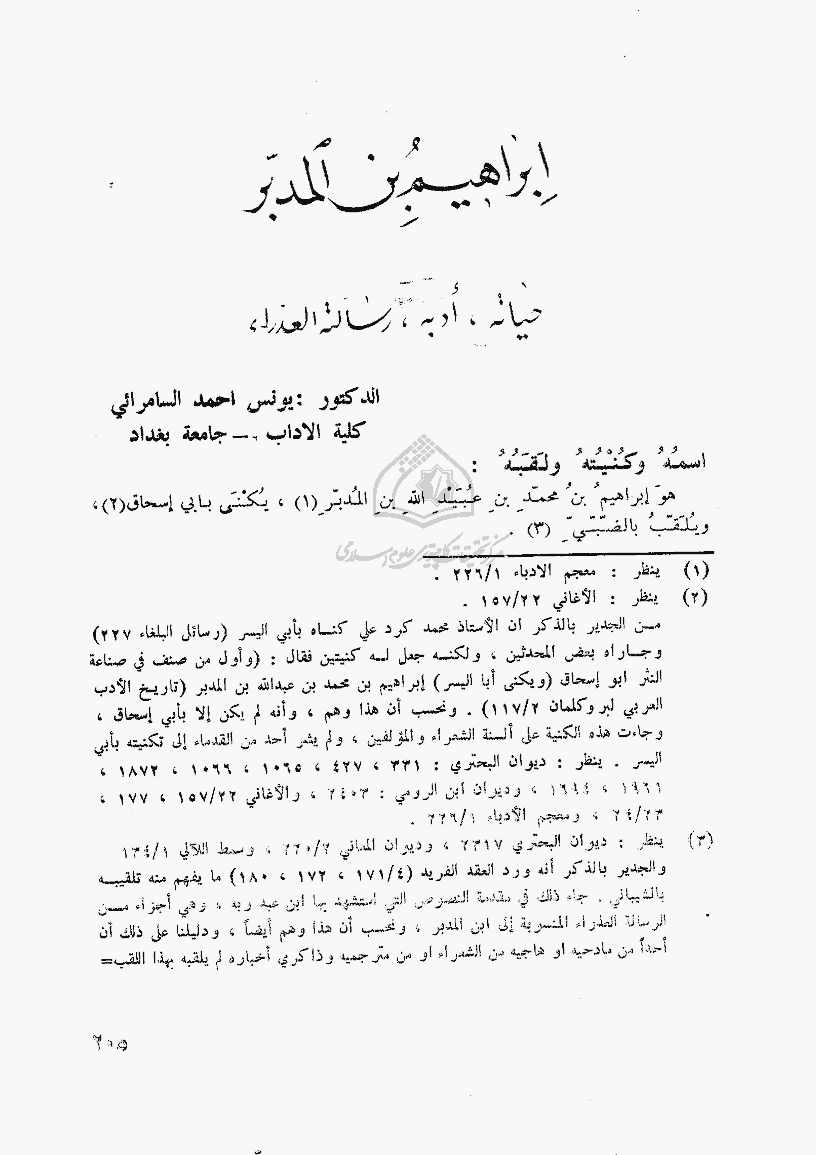 إبراهيم بن المدبر
حياته ، أدبه ، رسالته العذراء
الدكتور : يونس احمد السامرائي
كلية الاداب - جامعة بغداد
اسمُهُ وكُنْيتهُ ولَقَبُهُ :
هوَ إبراهيمُ بنُ محمّدِ بنِ عُبَيْدِ اللّهِ بنِ المُدبّرِ (١) ، يُكْنَى بأبي إسحاق(٢) ،
ويُلَقّبُ بالضّبّيّ (٣) .
مركز تحقيقات كامپيوتری علوم اسلامی
(١) ينظر : معجم الادباء ٢٢٦/١ .
(٢) ينظر : الأغاني ١٥٧/٢٢ .
مــن الجدير بالذكر ان الأستاذ محمد كرد علي كنــاه بأبي اليسر (رسائل البلغاء ٢٢٧)
وجــاراه بعض المحدثين ، ولكنــه جعل لــه كنيتين فقال : (وأول من صنف في صناعة
النثر ابو إسحاق (ويكنى أبا اليسر) إبراهيم بن محمد بن عبدالله بن المدبر (تاريخ الأدب
العربي لبروكلمان ١١٧/٢) . ونحسب أن هذا وهم ، وأنه لم يكن إلا بأبي إسحاق ،
وجاءت هذه الكنية على ألسنة الشعراء والمؤلفين ، ولم يشر أحد من القدماء إلى تكنيته بأبي
اليسر . ينظر : ديوان البحتري : ٣٣١ ، ٤٢٧ ، ١٠٦٥ ، ١٠٦٦ ، ١٨٧٢ ،
١٩٦١ ، ١٦٩٤ ، وديوان ابن الرومي : ٢٤٠٣ ، والأغاني ١٥٧/٢٢ ، ١٧٧ ،
٢٤/٢٣ ، ومعجم الأدباء ٢٢٦/١ .
(٣) ينظر : ديوان البحتري ٢٣١٧ ، وديوان المعاني ٢٢٠/٢ ، وسمط اللآلي ١٣٤/١
والجدير بالذكر أنه ورد العقد الفريد (١٧١/٤ ، ١٧٢ ، ١٨٠) ما يفهم منه تلقيبــه
بالشيباني . جاء ذلك في مقدمة النصوص التي استشهد بها ابن عبد ربه ، وهي أجزاء مــن
الرسالة العذراء المنسوبة إلى ابن المدبر ، ونحسب أن هذا وهم أيضاً ، ودليلنا على ذلك أن
أحداً من مادحيه او هاجيه من الشعراء او من مترجميه وذاكري أخباره لم يلقبه بهذا اللقب=
٢٠٥